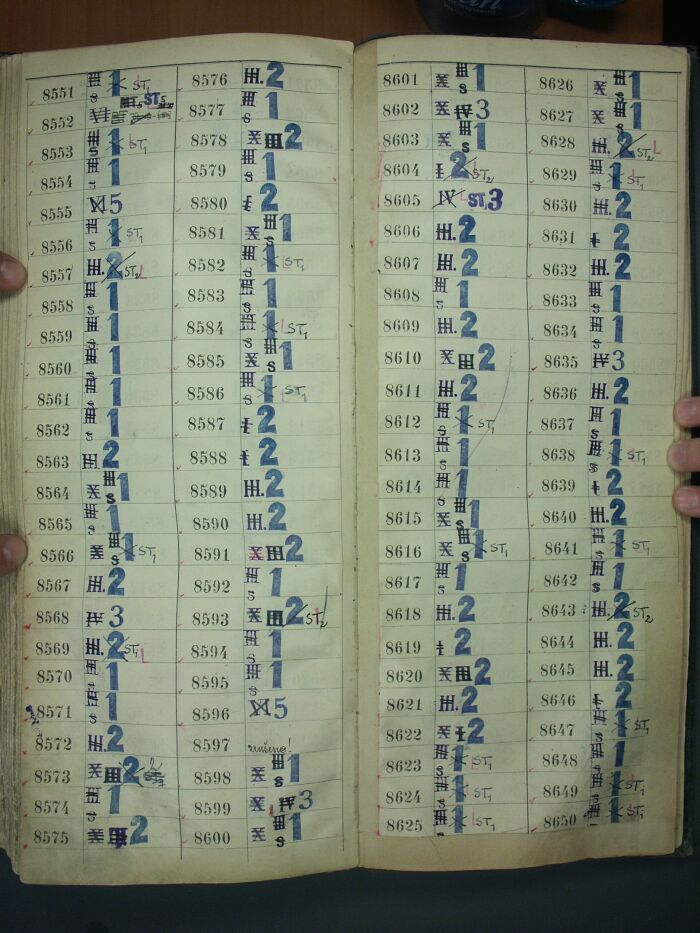 8551 1 ST1
8552 ST5
8553 1 ST1
8554 1
8555 XI 5
8556 1 ST1
8557 III. 2 ST2 L
8558 1
8559 1
8560 1
8561 1
8562 1
8563 III 2
8564 X III S 1
8565 1
8566 X III S 1 ST1
8567 III. 2
8568 IV 3
8569 III. 2 ST1 L
8570 III S 1
8571 III S 1
8572 III. 2
8573 X III 2
8574 III S 1
8575 X III 2
8576 III. 2
8577 III S 1
8578 X III 2
8579 III S 1
8580 I 2
8581 X III S 1
8582 III S 1 ST1
8583 III S 1
8584 III S 1 ST1
8585 X III S 1
8586 III S 1 ST1
8587 I 2
8588 I 2
8589 III. 2
8590 III. 2
8591 X III 2
8592 III S 1
8593 X III 2 ST2
8594 III S 1
8595 III S 1
8596 XI 5
8597 zrušeno!
8598 X III S 1
8599 X IV 3
8600 X III S 1
8601 X III S 1
8602 X IV 3
8603 X III S 1
8604 I 2 ST2
8605 IV ST. 3
8606 III. 2
8607 III. 2
8608 III S 1
8609 III. 2
8610 X III 2
8611 III. 2
8612 III S 1 ST1
8613 III S 1
8614 III S 1
8615 X III S 1
8616 X III S 1 ST1
8617 III S 1
8618 III. 2
8619 I 2
8620 X III 2
8621 III. 2
8622 X I 2
8623 III S 1 ST1
8624 III S 1 ST1
8625 III S 1 ST1
8626 X III S 1
8627 X III S 1
8628 III. 2 ST2 L
8629 III S 1 ST1
8630 III. 2
8631 I 2
8632 III. 2
8633 III S 1
8634 III S 1
8635 IV 3
8636 III. 2
8637 III S 1
8638 III S 1 ST1
8639 I 2
8640 III. 2
8641 III S 1 ST1
8642 III S 1
8643 III. 2 ST2
8644 III. 2
8645 III. 2
8646 I 2
8647 III S 1 ST1
8648 III S 1
8649 III S 1 ST1
8650 III 1 ST1